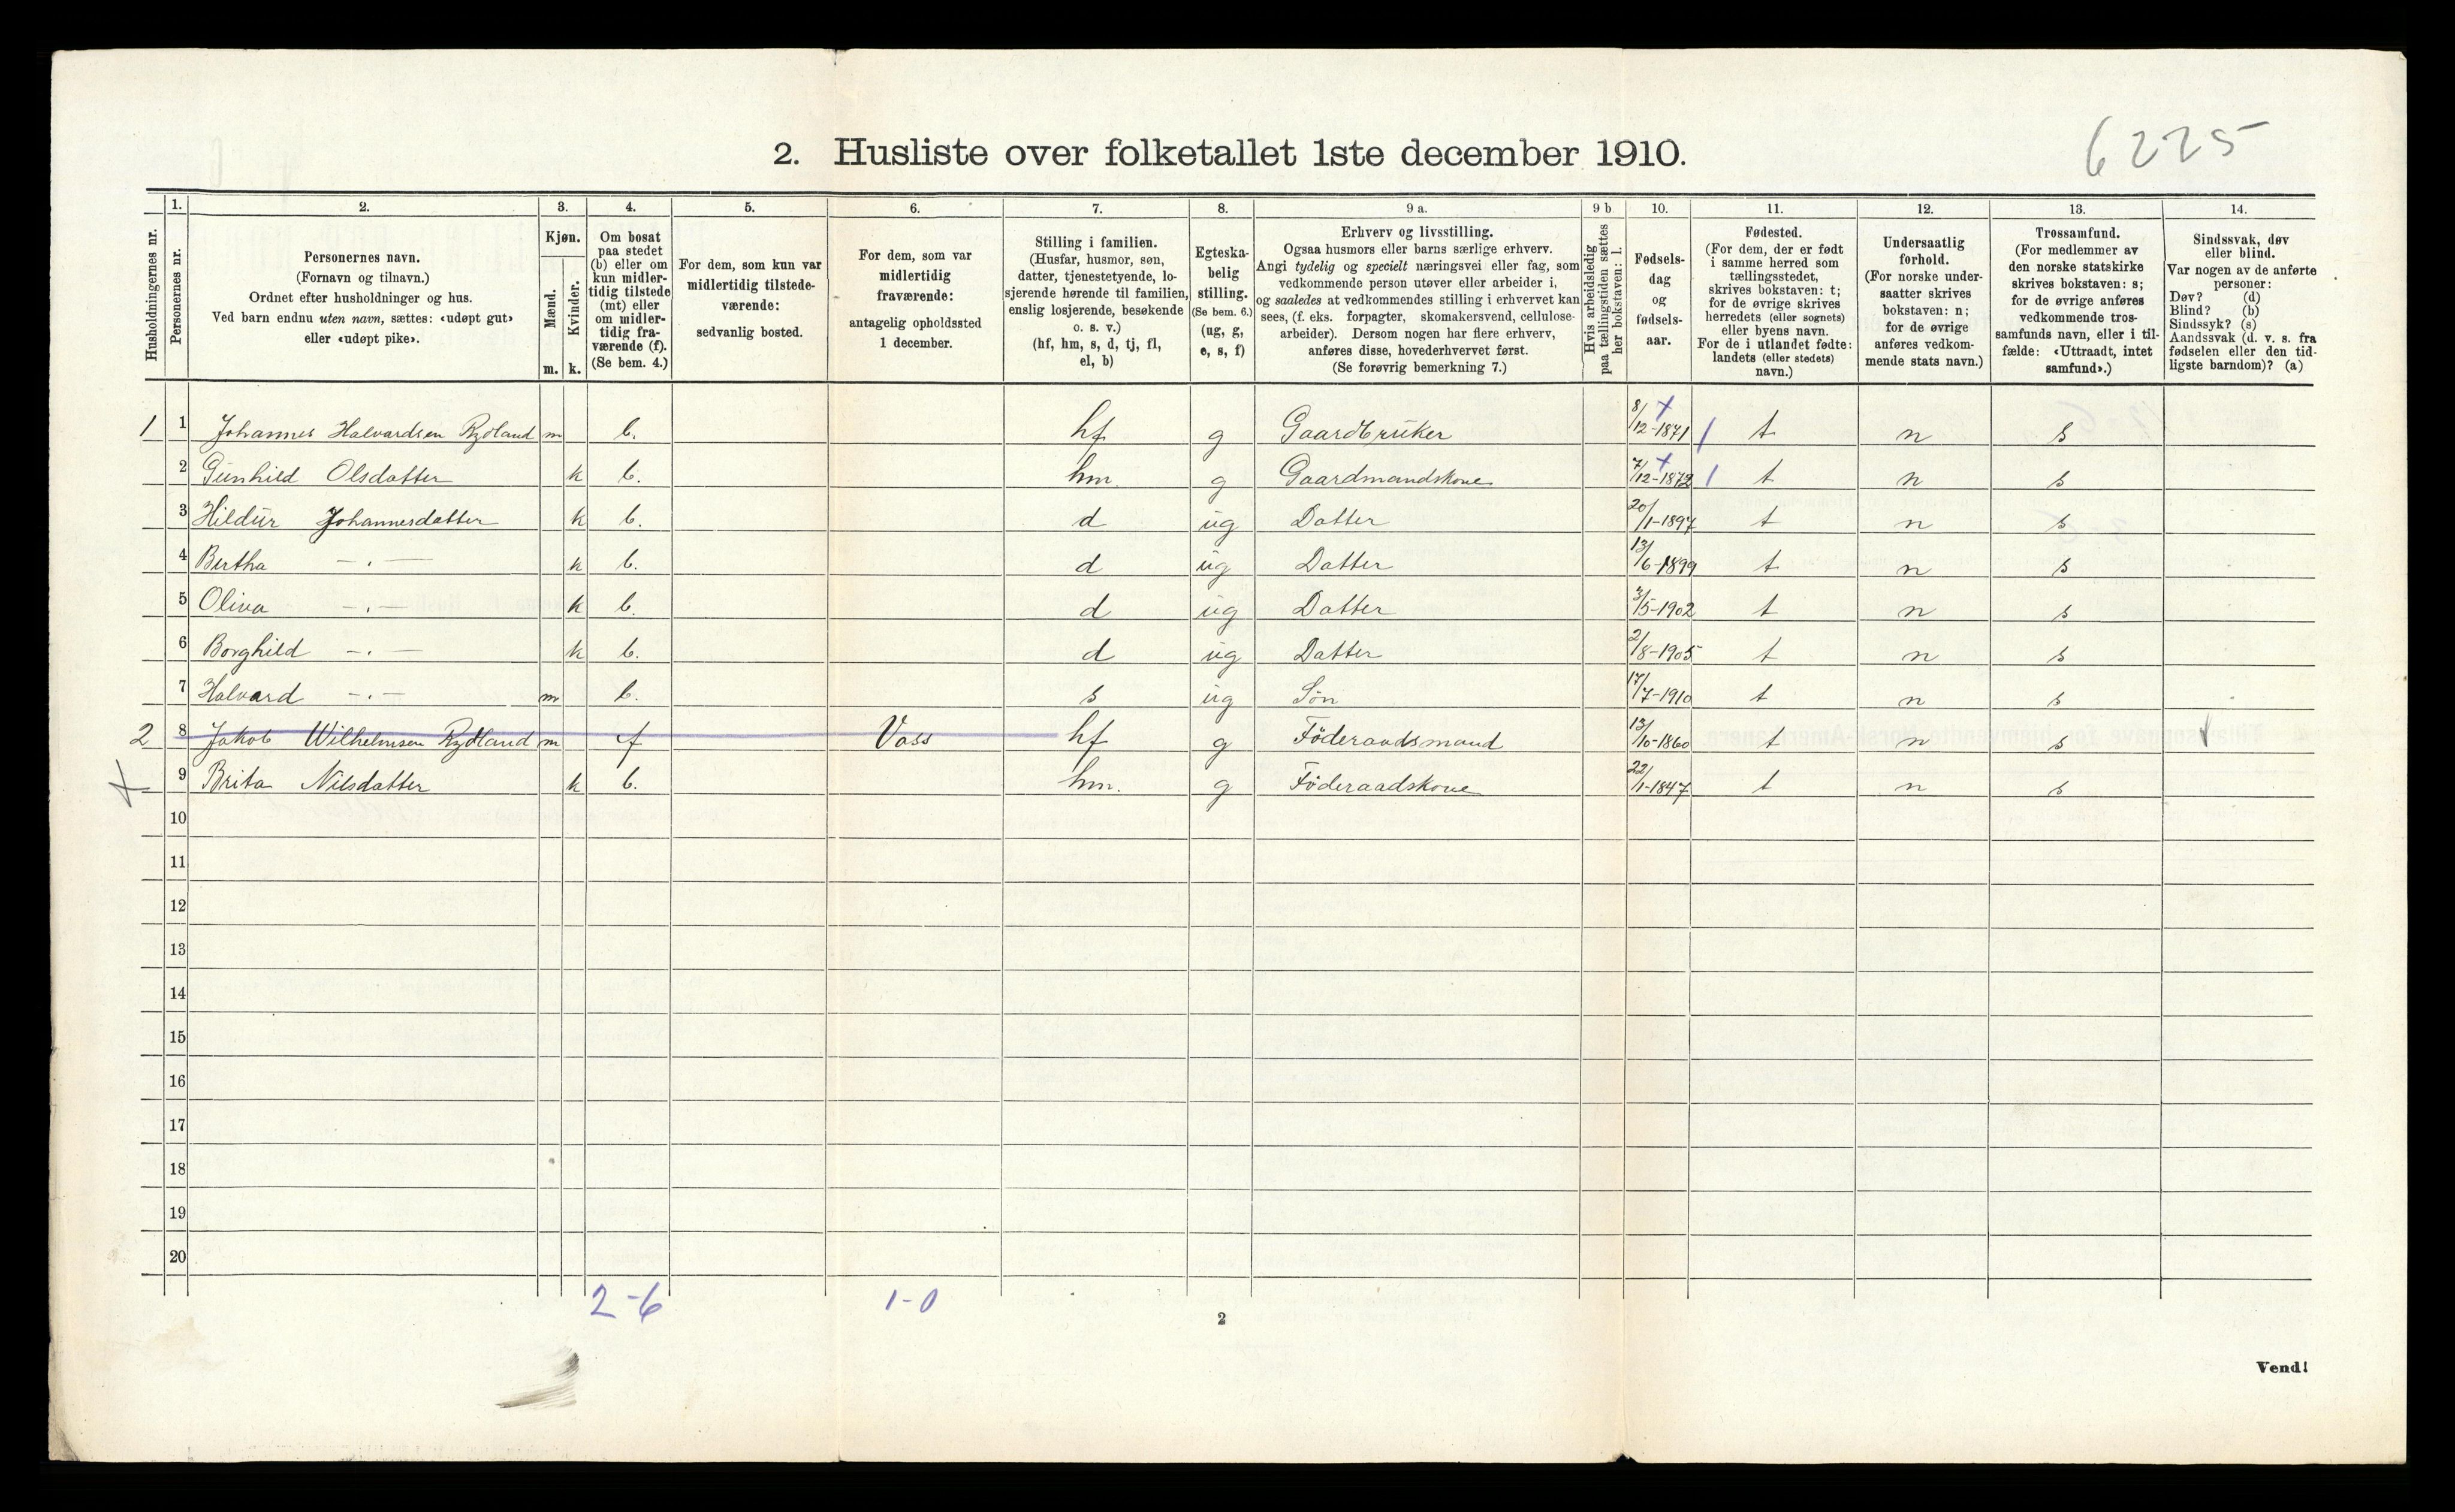 6225
2. Husliste over folketallet 1ste december 1910.
Husholdningernes nr.
1. Personernes nr.
2. Personernes navn.
(Fornavn og tilnavn.)
Ordnet efter husholdninger og hus.
Ved barn endnu uten navn, sættes: «udøpt gut»
eller «udøpt pike».
3. Kjøn.
Mænd. m.
Kvinder. k.
4. Om bosat
paa stedet
(b) eller om
kun midler-
tidig tilstede
(mt) eller
om midler-
tidig fra-
værende (f).
(Se bem. 4.)
5. For dem, som kun var
midlertidig tilstede-
værende:
sedvanlig bosted.
6. For dem, som var
midlertidig
fraværende:
antagelig opholdssted
1 december.
7. Stilling i familien.
(Husfar, husmor, søn,
datter, tjenestetyende, lo-
sjerende hørende til familien,
enslig losjerende, besøkende
o. s. v.)
(hf, hm, s, d, tj, fl,
el, b)
8. Egteska-
belig
stilling.
(Se bem. 6.)
(ug, g,
e, s, f)
9 a. Erhverv og livsstilling.
Ogsaa husmors eller barns særlige erhverv.
Angi tydelig og specielt næringsvei eller fag, som
vedkommende person utøver eller arbeider i,
og saaledes at vedkommendes stilling i erhvervet kan
sees, (f. eks. forpagter, skomakersvend, cellulose-
arbeider). Dersom nogen har flere erhverv,
anføres disse, hovederhvervet først.
(Se forøvrig bemerkning 7.)
9 b. Hvis arbeidsledig
paa tællingstiden sættes
her bokstaven: l.
10. Fødsels-
dag
og
fødsels-
aar.
11. Fødested.
(For dem, der er født
i samme herred som
tællingsstedet,
skrives bokstaven: t;
for de øvrige skrives
herredets (eller sognets)
eller byens navn.
For de i utlandet fødte:
landets (eller stedets)
navn.)
12. Undersaatlig
forhold.
(For norske under-
saatter skrives
bokstaven: n;
for de øvrige
anføres vedkom-
mende stats navn.)
13. Trossamfund.
(For medlemmer av
den norske statskirke
skrives bokstaven: s;
for de øvrige anføres
vedkommende tros-
samfunds navn, eller i til-
fælde: «Uttraadt, intet
samfund».)
14. Sindssvak, døv
eller blind.
Var nogen av de anførte
personer:
Døv? (d)
Blind? (b)
Sindssyk? (s)
Aandssvak (d. v. s. fra
fødselen eller den tid-
ligste barndom)? (a)
1 1 Johannes Halvardsen Rydland m b. hf g Gaardbruker 8/12-1871 t n s
2 Gunhild Olsdatter k b. hm. g Gaardmandskone 7/12-1872 t n s
3 Hildur Johannesdatter k b. d ug Datter 20/1-1897 t n s
4 Bertha -"- k b. d ug Datter 13/6-1899 t n s
5 Oliva -"- k b. d ug Datter 3/5-1902 t n s
6 Borghild -"- k b. d ug Datter 2/8-1905 t n s
7 Halvard -"- m b. s ug Søn 17/7-1910 t n s
2 8 Jakob Wilhelmsen Rydland m f Voss hf g Föderaadsmand 13/10-1860 t n s
9 Brita Nilsdatter k b. hm. g Föderaadskone 22/1-1847 t n s
10
11
12
13
14
15
16
17
18
19
20
2-6 1-0
2
Vend!